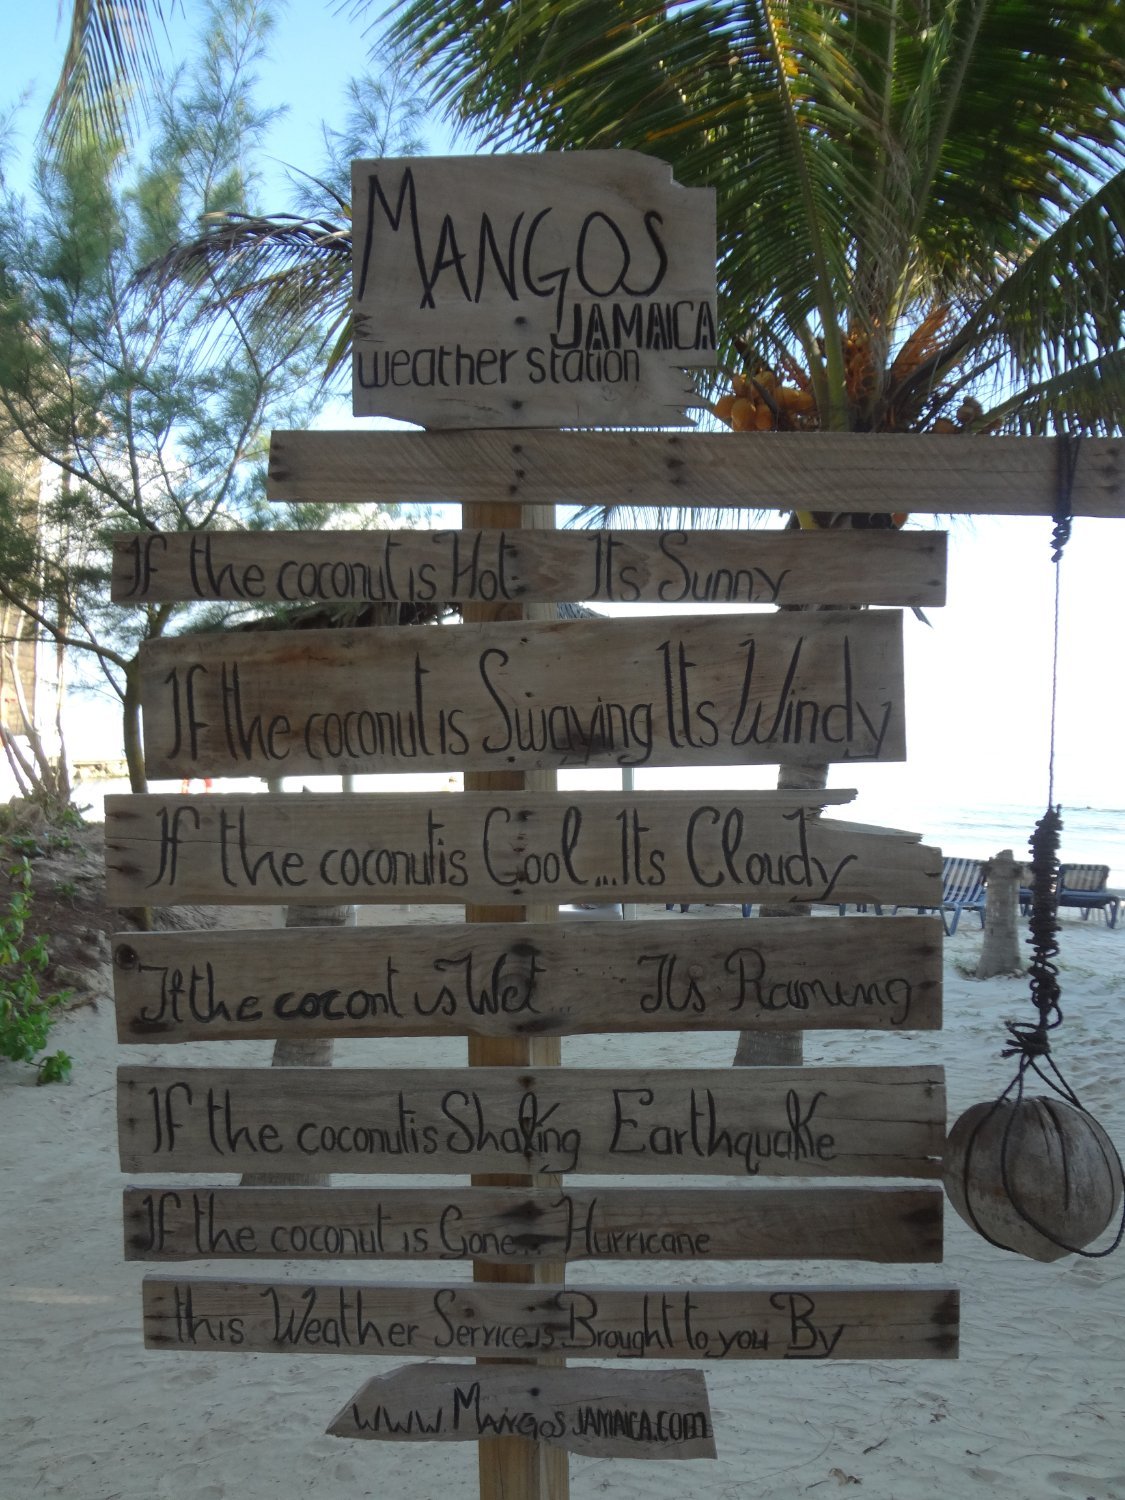 MANGOS
JAMAICA
weather station
If the coconut is Hot Its Sunny
If the coconut is Swaying Its Windy
If the coconut is Cool... Its Cloudy
If the cocont is Wet... Its Raining
If the coconut is Shaking Earthquake
If the coconut is Gone... Hurricane
this Weather Service is Brought to you By
www.MangosJAMAICA.com